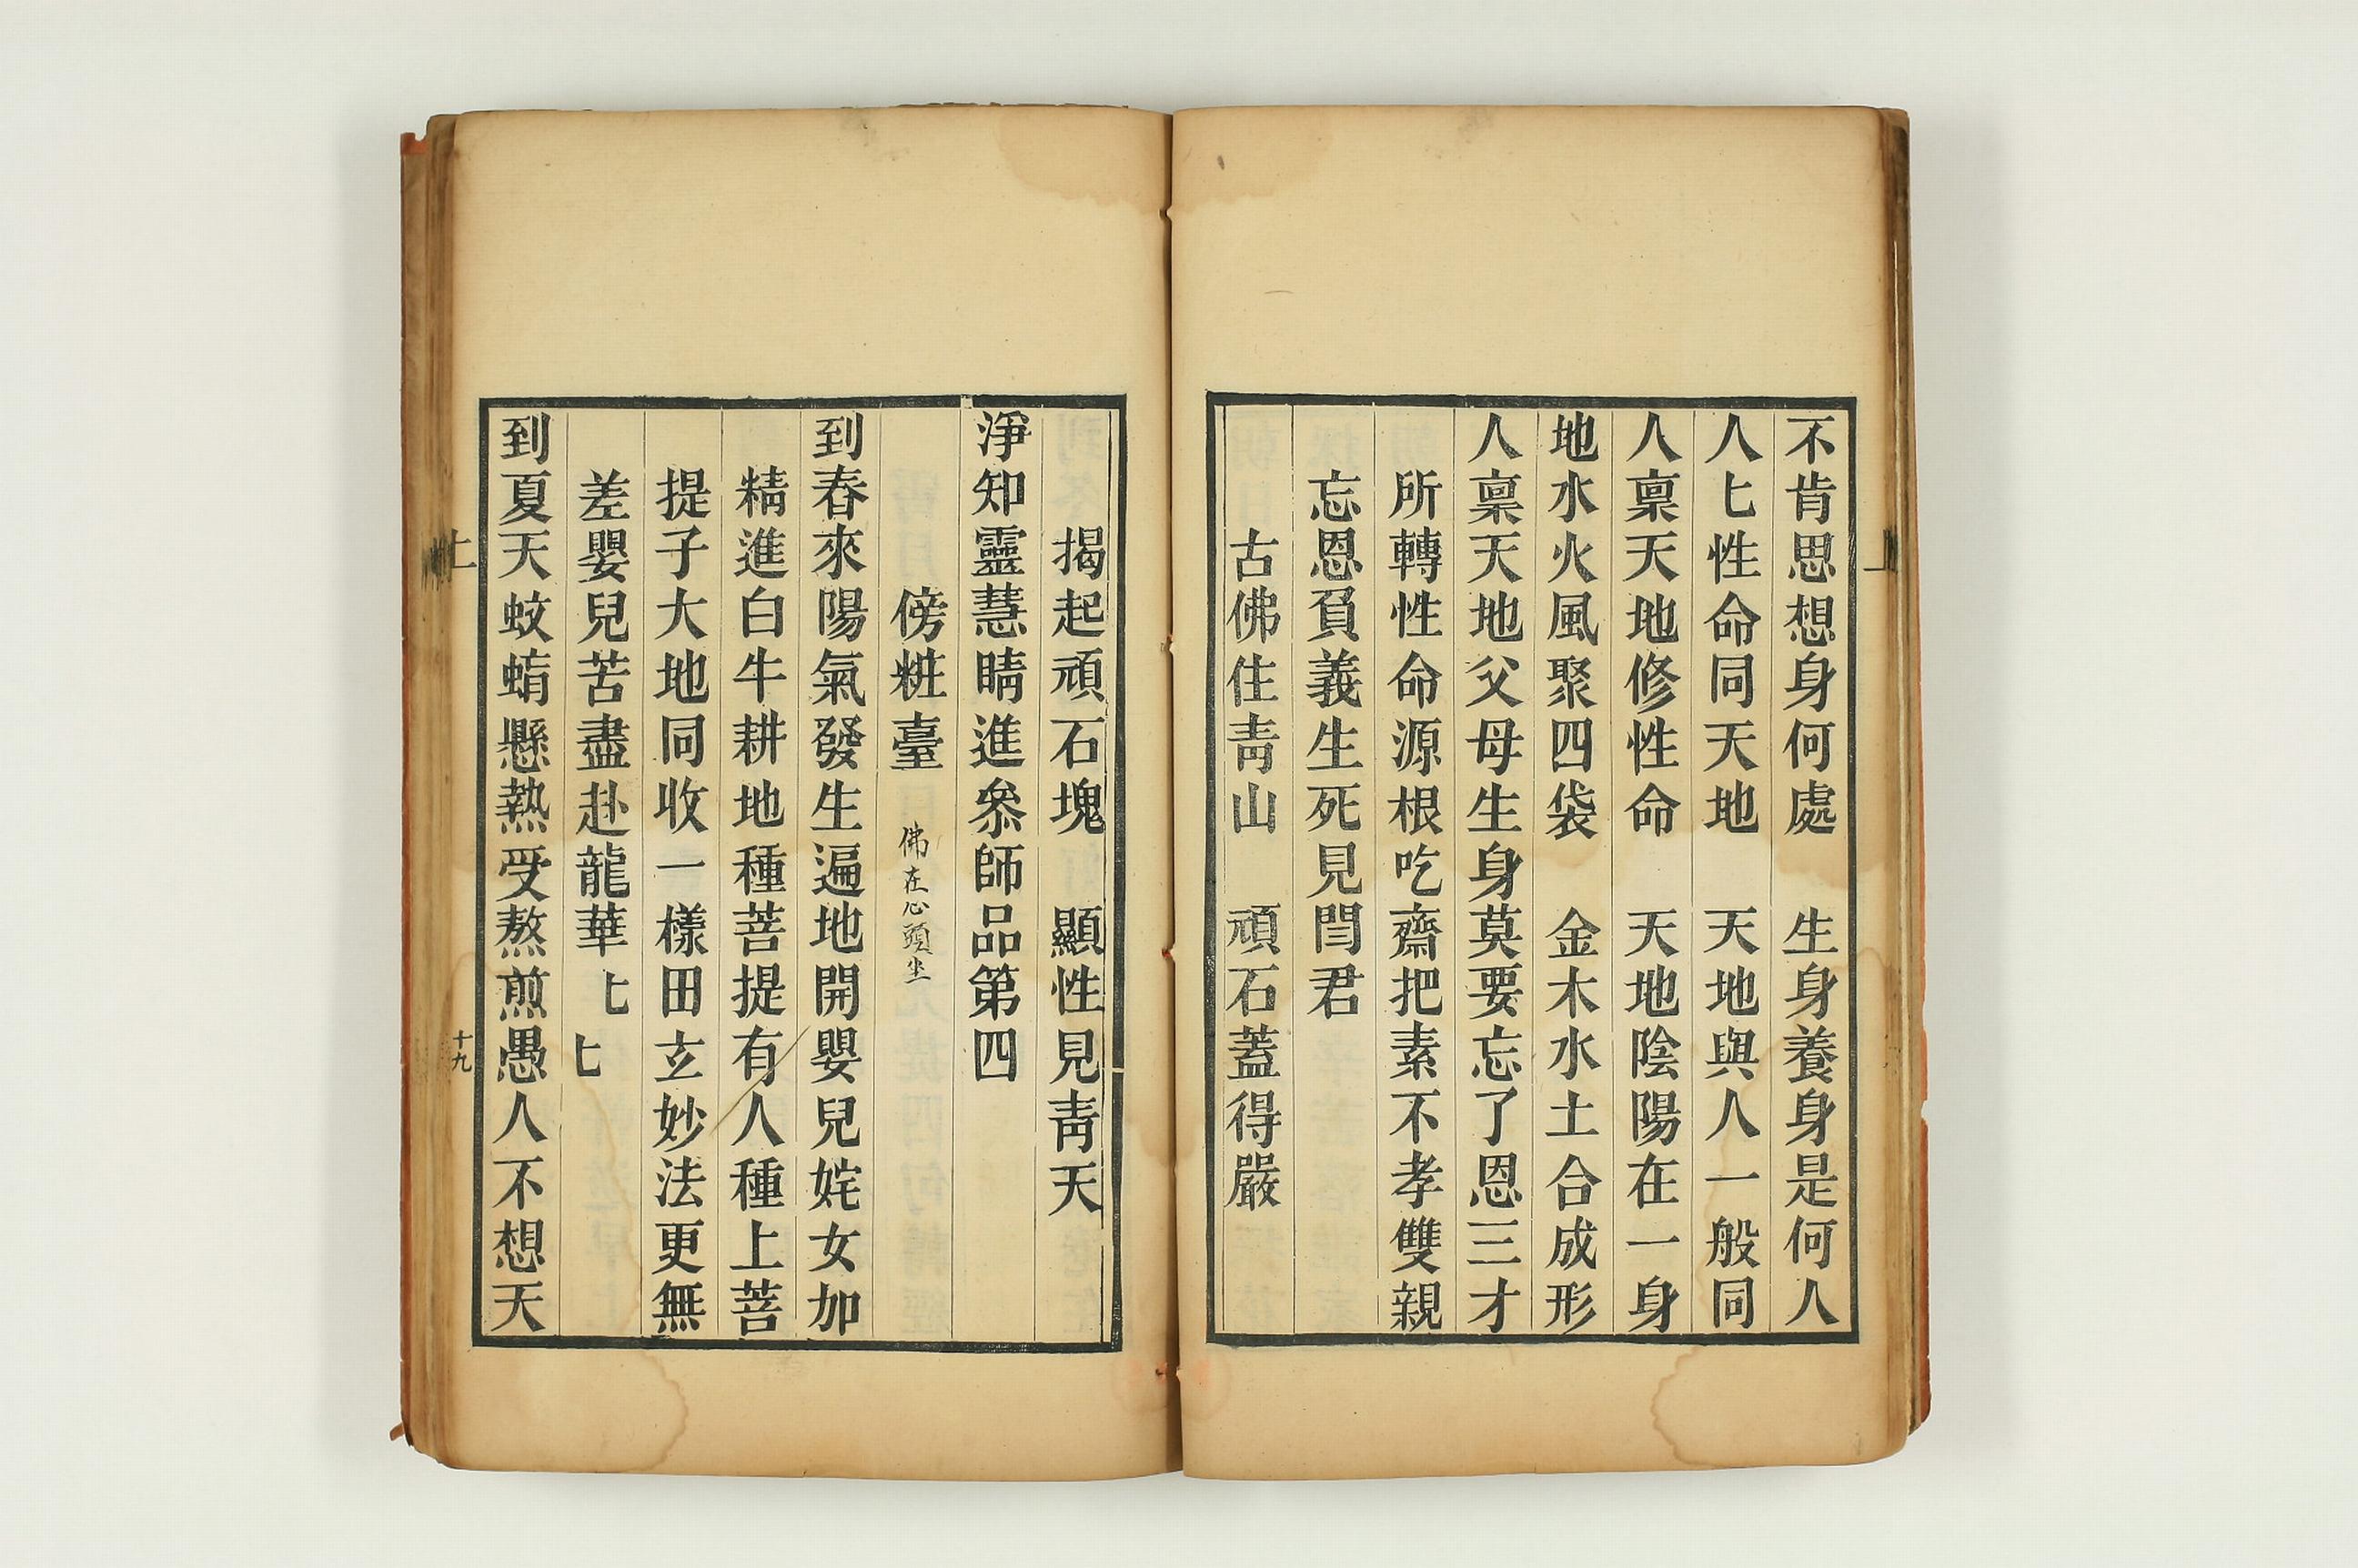 不肯思想身何處　生身養身是何人
人匕性命同天地　天地與人一般同
人稟天地修性命　天地陰陽在一身
地水火風聚四袋　金木水土合成形
人稟天地父母生身莫要忘了恩三才
所轉性命源根吃齋把素不孝雙親
忘恩負義生死見閆君
古佛住青山　頑石蓋得嚴
揭起頑石塊　顯性見青天
淨知靈慧睛進叅師品第四
傍粧臺　佛在心頭坐
到春來陽氣發生遍地開嬰兒姹女加
精進白牛耕地種菩提有人種上菩
提子大地同收一樣田玄妙法更無
差嬰兒苦盡赴龍華匕匕
到夏天蚊蜎懸熱受熬煎愚人不想天
上
十九